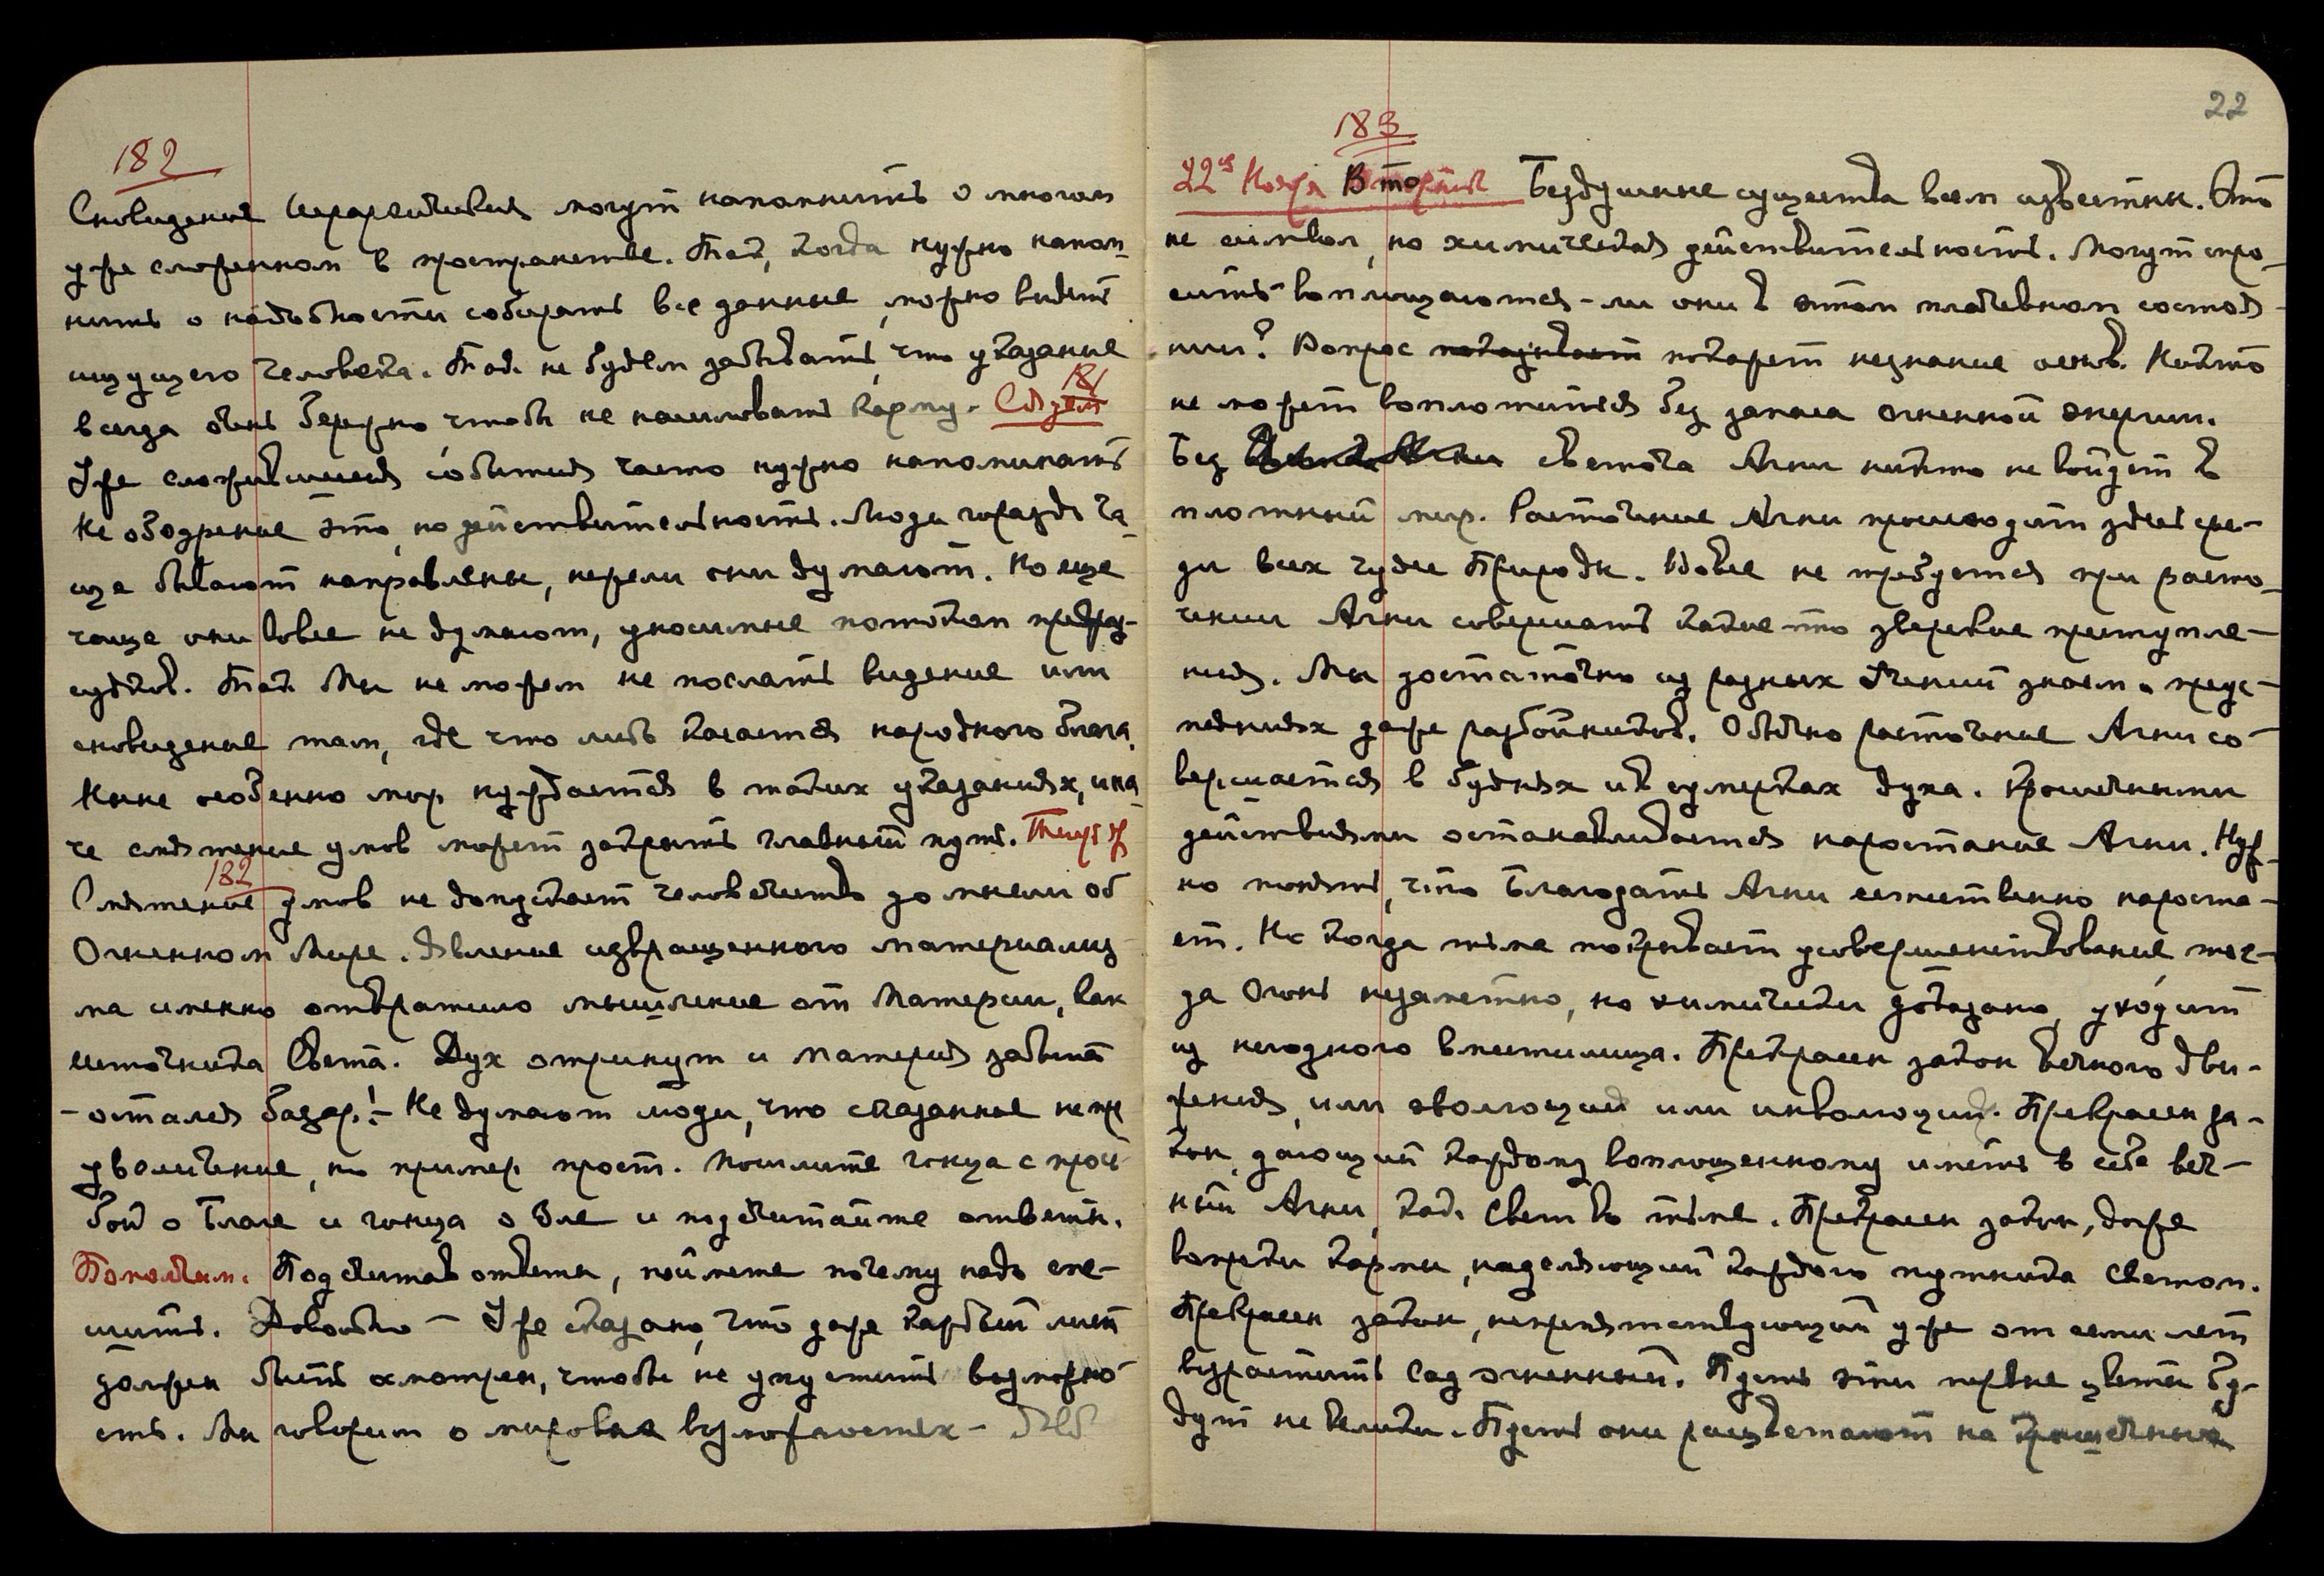 182
Сновидения Иерархические могут напомнить о многом
уже сложенном в пространстве. Так, когда нужно напом-
нить о надобности собирать все данные, можно видеть
ищущего человека. Так не будем забывать, что указание
всегда очень бережно, чтобы не насиловать карму.
181
Уже сложившиеся события часто нужно напоминать
Не ободрение это, но действительность. Люди гораздо ча-
ще бывают направлены, нежели они думают. Но еще
чаще они вовсе не думают, уносимые потоком предрас-
судков. Так Мы не можем не послать видение или
сновидение там, где что либо касается народного блага.
Ныне особенно мир нуждается в таких указаниях, ина-
че смятение умов может закрыть главный путь.
182
Смятение умов не допускает человечество до мысли об
Огненном Мире. Явление извращенного материализ-
ма именно отвратило мышление от Материи, как
источника Света. Дух отринут и материя забыта
- остался базар! - Не думают люди, что сказанное не пре
увеличение, но пример прост. Пошлите гонца с прось-
бой о Благе и гонца о Зле и подсчитайте ответы.
Пополдни. Подсчитав ответы, поймете почему надо спе-
шить. Довольно - Уже сказано, что даже каждый лист
должен быть осмотрен, чтобы не упустить возможно-
сть. Мы говорим о мировых возможностях -
22
183
22е Ноября Вторник Бездушные существа всем известны. Это
не символ, но химическая действительность. Могут спро-
сить воплощаются-ли они в этом плачевном состоя-
нии? Вопрос показывает покажет незнание основ. Никто
не может воплотиться без запаса огненной энергии.
Без светоча Агни никто не войдет в
плотный мир. Расточение Агни происходит здесь сре-
ди всех чудес Природы. Вовсе не требуется при расто-
чении Агни совершать какие-то зверские преступле-
ния. Мы достаточно из разных Учений знаем о преус-
пеяниях даже разбойников. Обычно расточение Агни со-
вершается в буднях и в сумерках духа. Крошечными
действиями останавливается наростание Агни. Нуж-
но понять, что Благодать Агни естественно нароста-
ет. Но когда тьма покрывает усовершенствование, тог-
да Огонь незаметно, но химически доказано, уходит
из негодного вместилища. Прекрасен закон вечного дви-
жения, или эволюция или инволюция. Прекрасен за-
кон, дающий каждому воплощенному иметь в себе веч-
ный Агни, как Свет во тьме. Прекрасен закон, даже
вопреки кармы, наделяющий каждого путника Светом.
Прекрасен закон, непрепятствующий уже от семи лет
взрастить Сад огненный. Пусть эти первые цветы бу-
дут не велики. Пусть они расцветают на крошечных